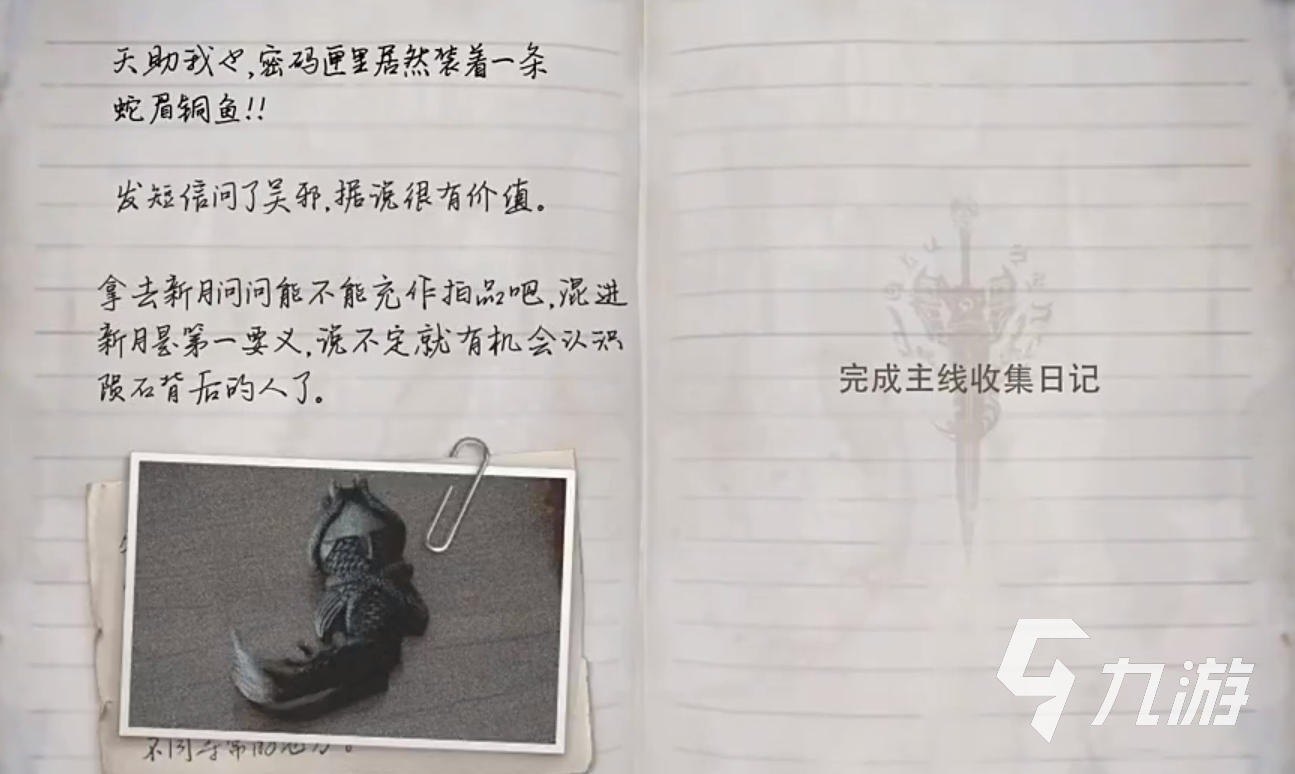 天助我也,密码匣里居然装着一条
蛇眉铜鱼!!
发短信问了吴邪,据说很有价值。
拿去新月问问能不能充作拍品吧,混进
新月是第一要义,说不定就有机会认识
陨石背后的人了。
不同寻常的地方。
完成主线收集日记
九游